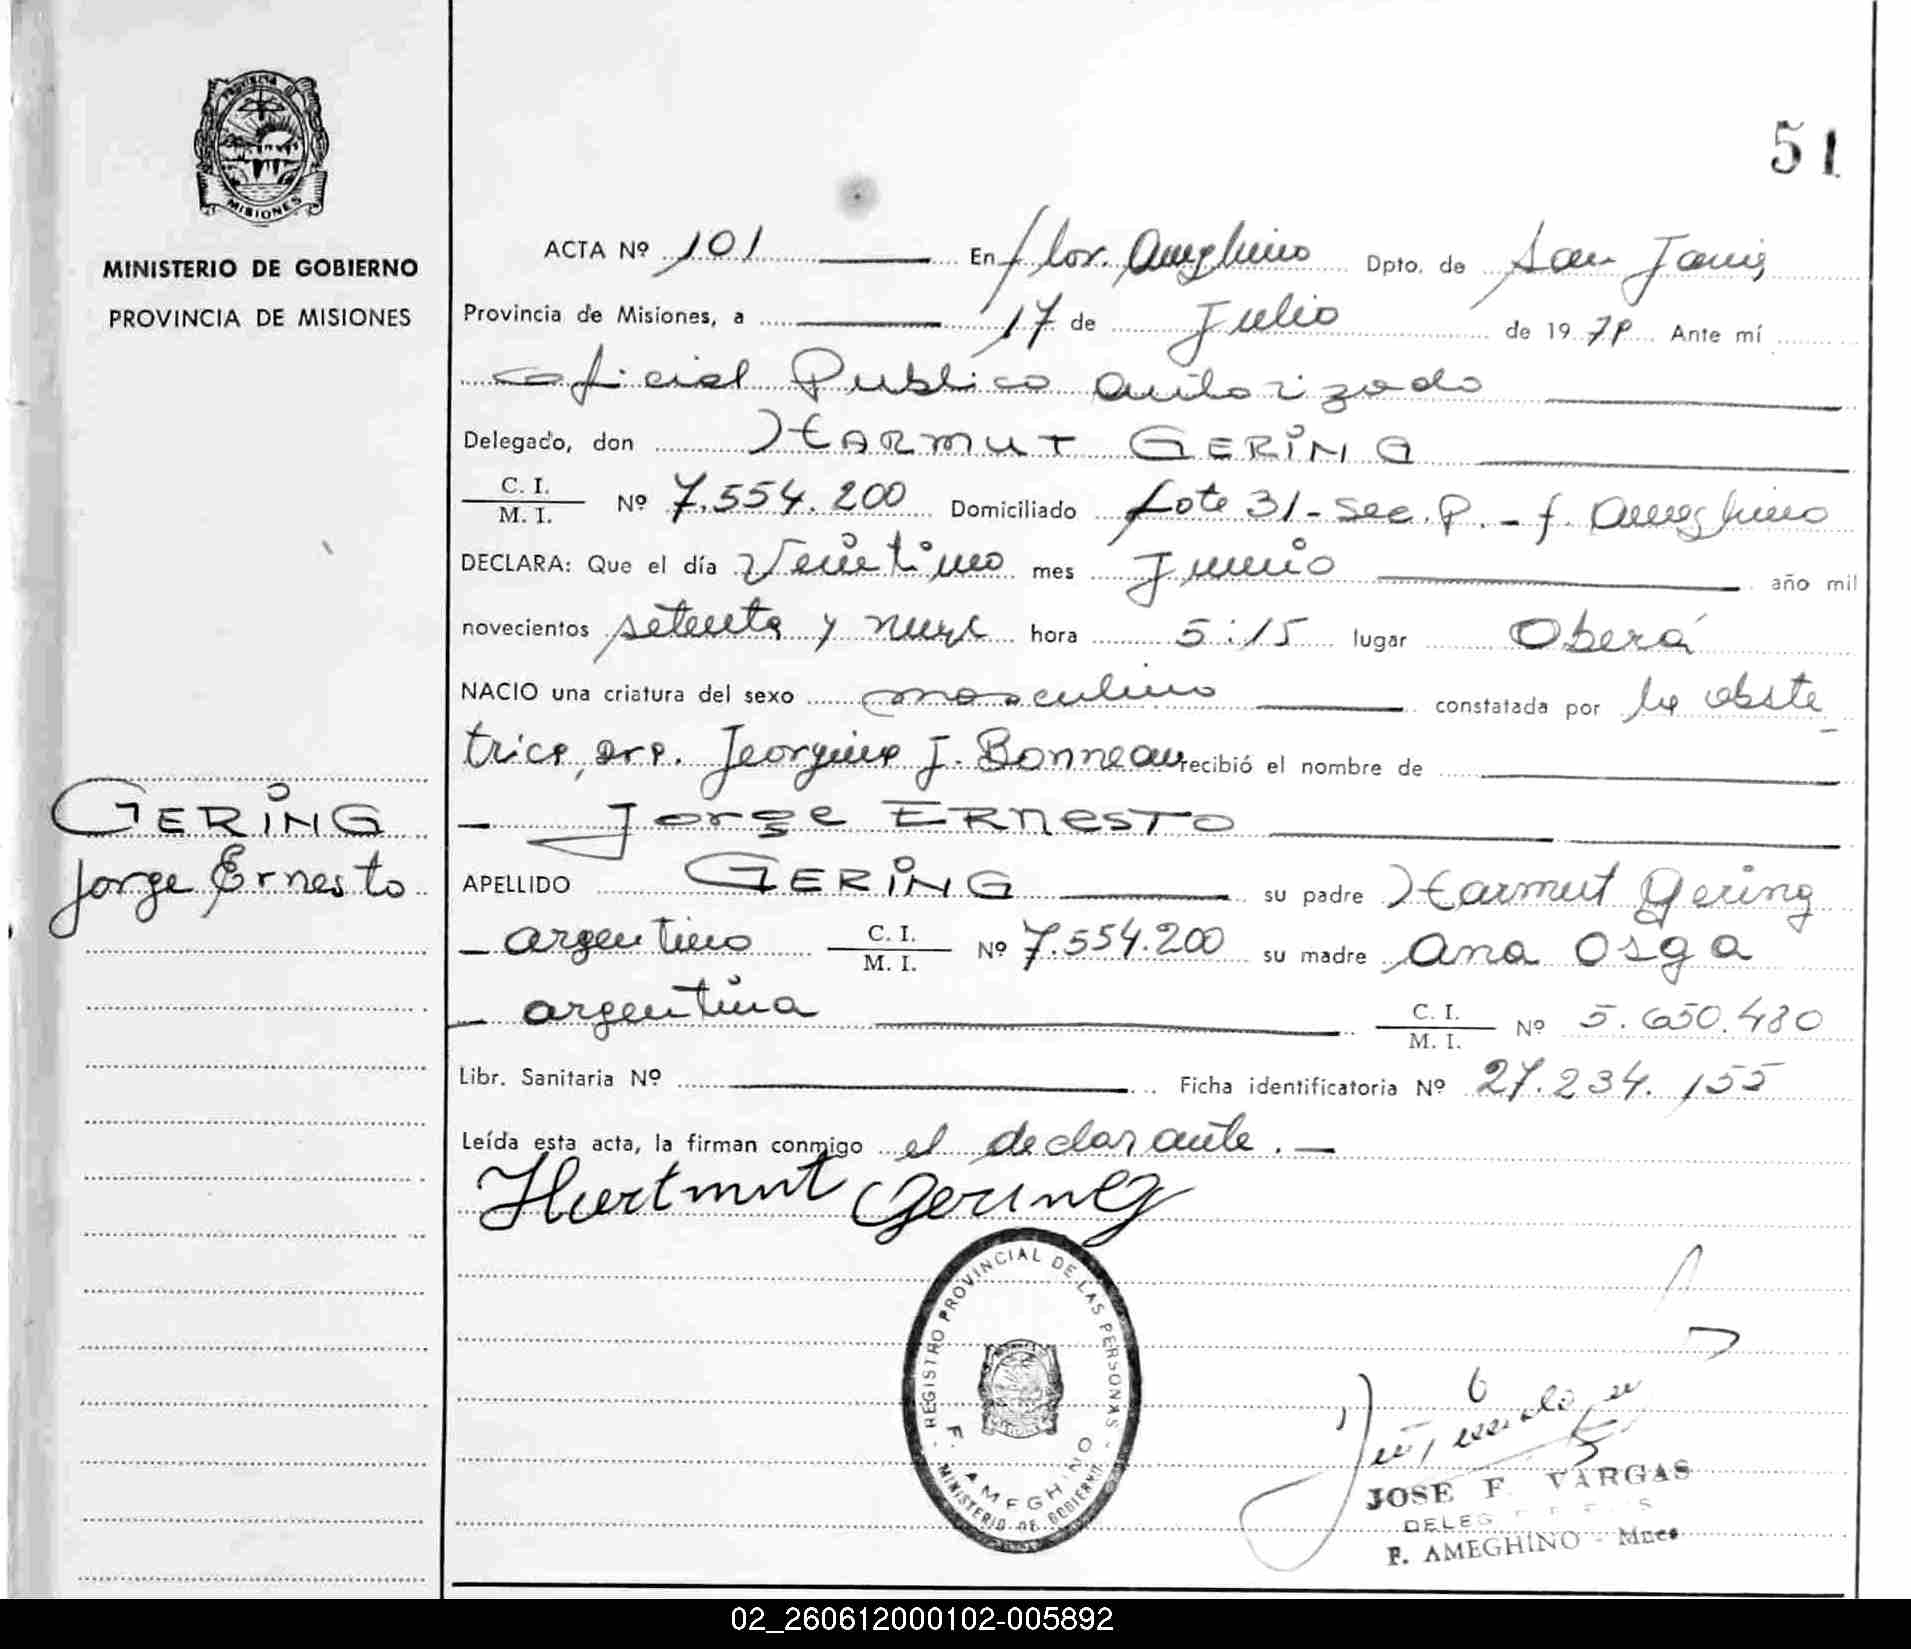 PROVINCIA
MISIONES
MINISTERIO DE GOBIERNO
PROVINCIA DE MISIONES
51
ACTA Nº 101 En Flor. Ameghino Dpto. de San Javier
Provincia de Misiones, a 17 de Julio de 1979. Ante mí
oficial Publico autorizado
Delegado, don HARMUT GERING
C. I.
M. I. Nº 7.554.200 Domiciliado Lote 31 - Sec. P. - f. Ameghino
DECLARA: Que el día Veintiuno mes Junio año mil
novecientos setenta y nueve hora 5:15 lugar Oberá
NACIO una criatura del sexo masculino constatada por la obste
trica, sra. Jeorgina J. Bonneau recibió el nombre de
Jorge ERNESTO
GERING
Jorge Ernesto
APELLIDO GERING su padre Harmut Gering
argentino C. I.
M. I. Nº 7.554.200 su madre Ana Osga
argentina C. I.
M. I. Nº 5.650.480
Libr. Sanitaria Nº Ficha identificatoria Nº 27.234.155
Leída esta acta, la firman conmigo el declarante. —
Hartmut Gering
REGISTRO PROVINCIAL DE LAS PERSONAS
F. AMEGHINO
MINISTERIO DE GOBIERNO
JOSE F. VARGAS
F. AMEGHINO - Mnes
02_260612000102-005892